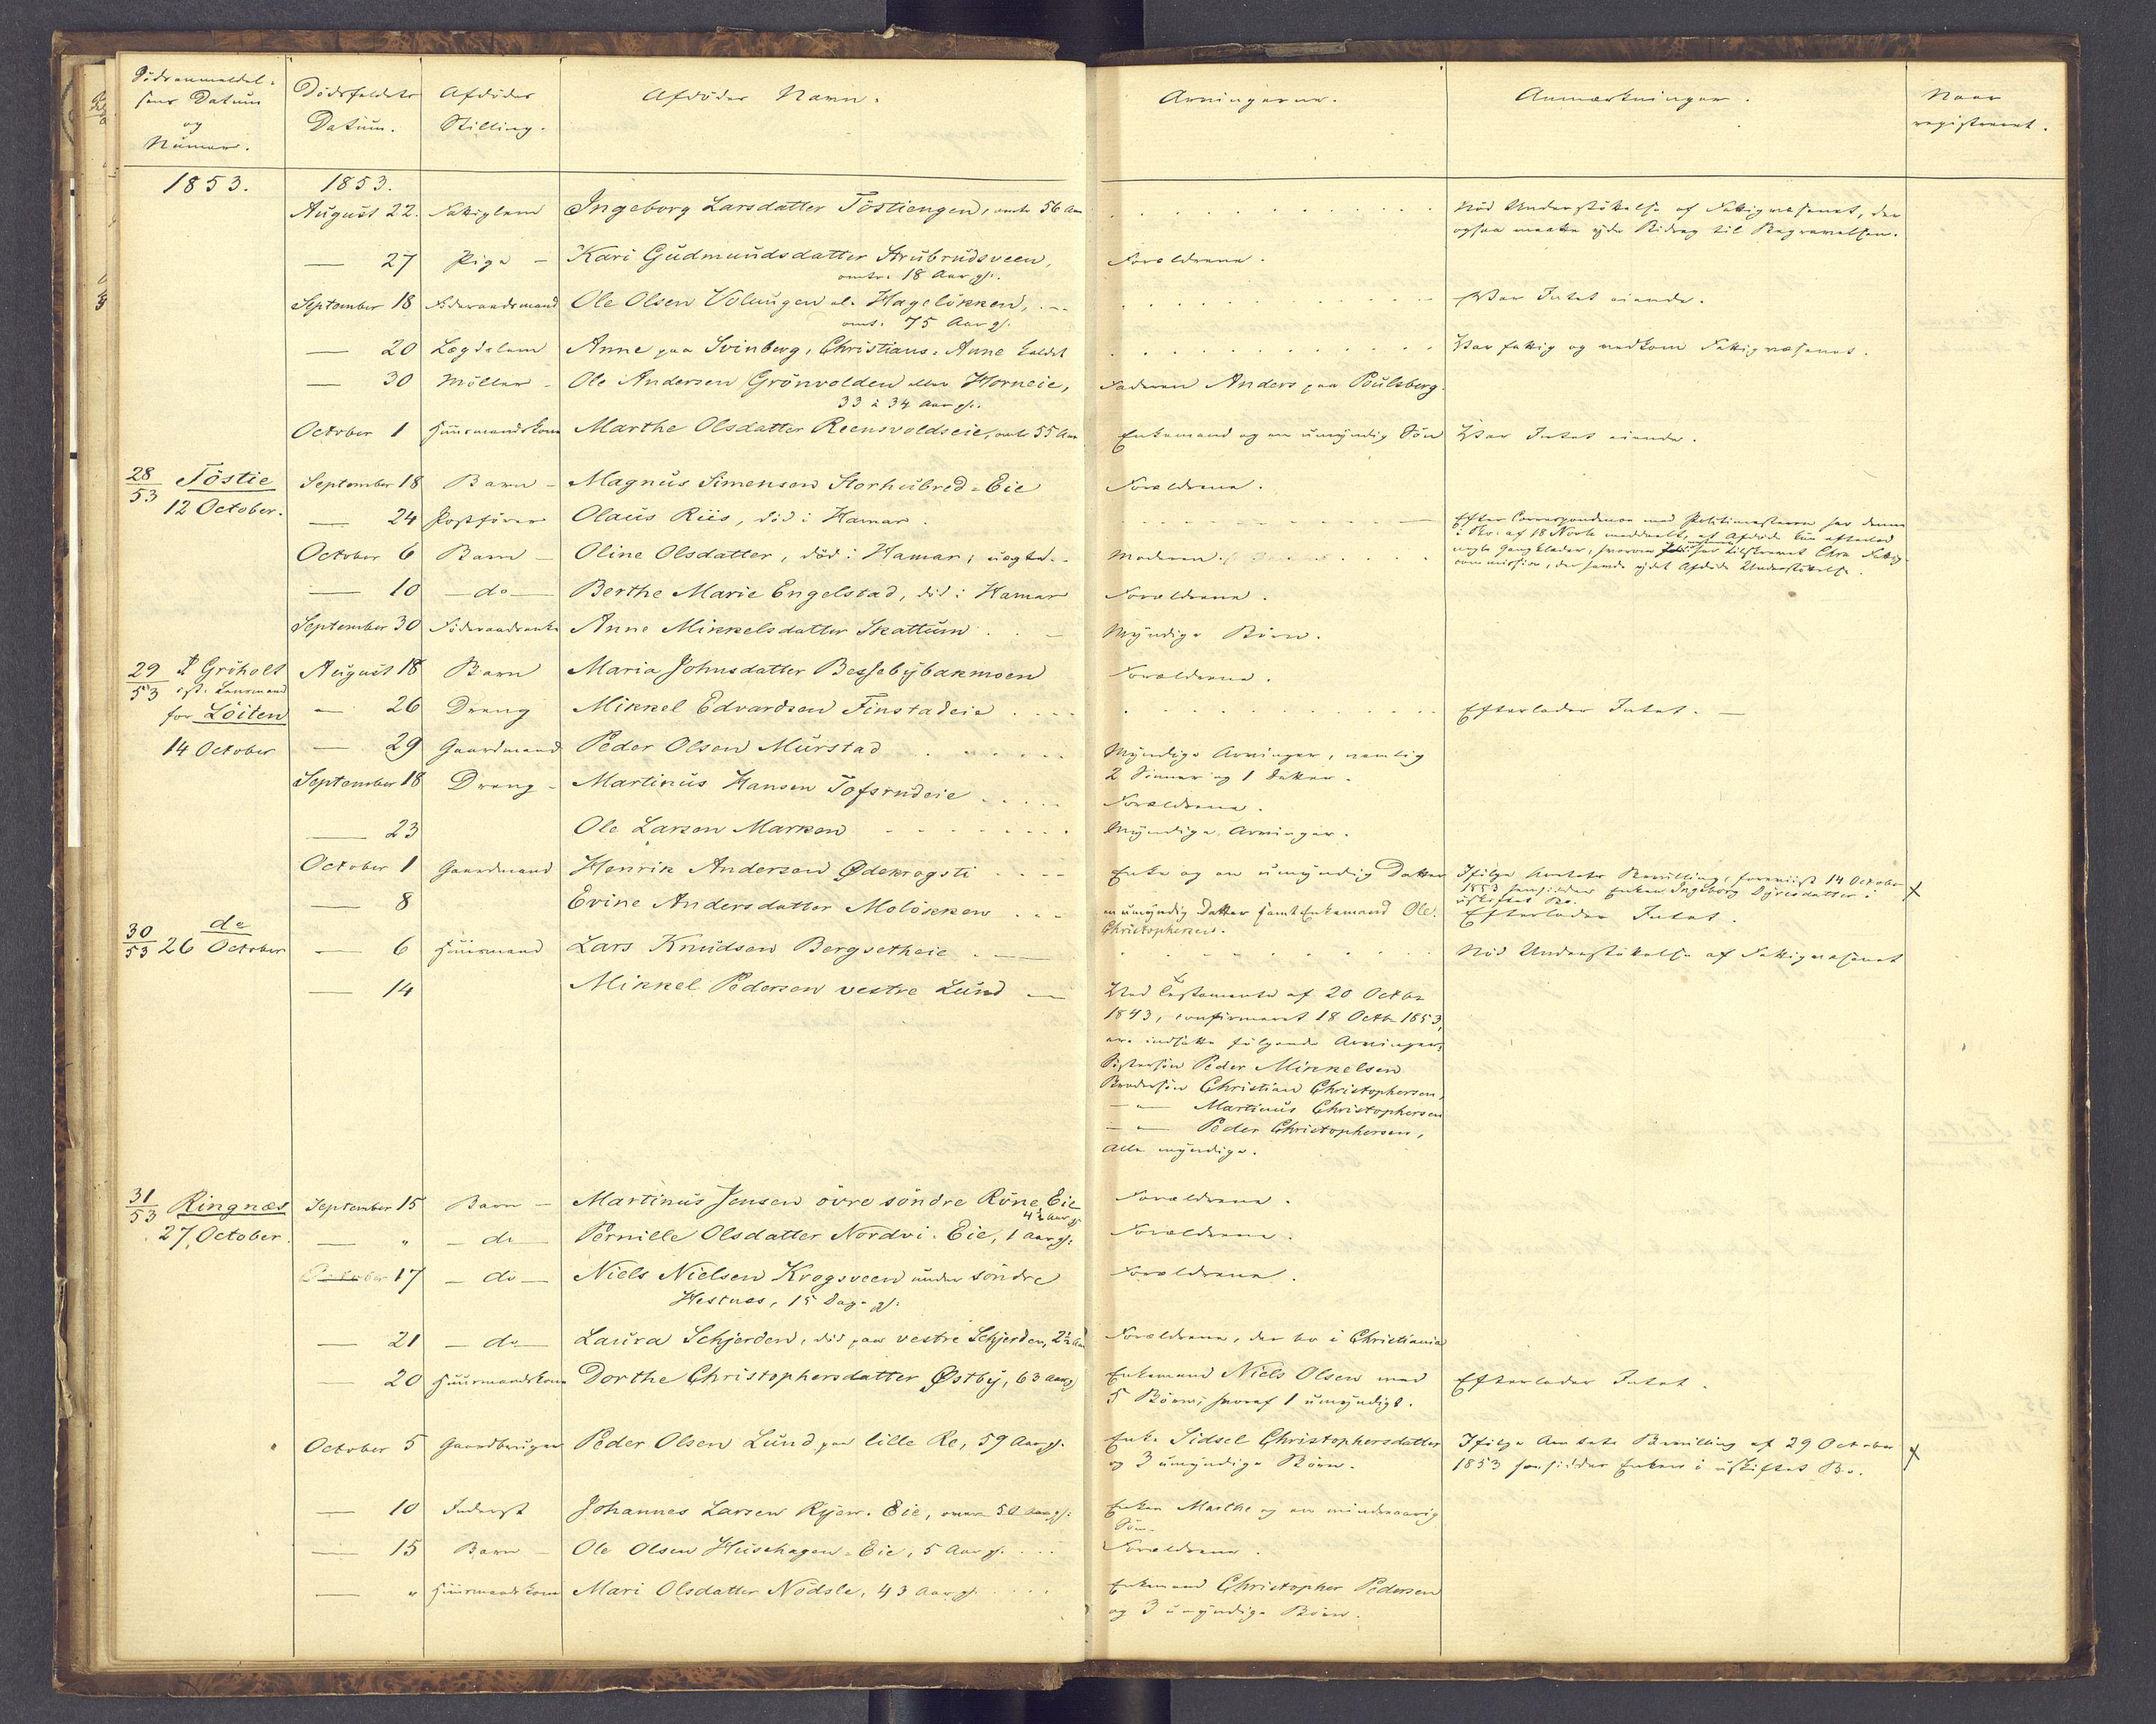 Dödsanmeldel-
sens Datum
og
Numer.
Dödsfaldets
Datum.
Afdödes
Stilling.
Afdödes Navn.
Arvingerne.
Anmærkninger.
Naar
registreret.
1853. 1853.
August 22. Fattiglem Ingeborg Larsdatter Töstiengen, omtr 56 Aar Nöd Understöttelse af Fattigvæsenet, der
ogsaa maatte yde Bidrag til Begravelsen.
— 27 Pige - Kari Gudmundsdatter Strubrudsveen, Forældrene.
omtr. 18 Aar gl.
September 18 Föderaadsmand Ole Olsen Volungen el. Hagelökken, Var Intet eiende.
omt. 75 Aar gl.
— 20 Lægdslem Anne paa Svinberg, Christians-Anne kaldet Var fattig og vedkom Fattigvæsenet.
— 30 Möller - Ole Andersen Grönvolden eller Horneie, Faderen Anders paa Poulsberg.
33 à 34 Aar gl.
October 1 Huusmandskone Marthe Olsdatter Reensvoldseie, omtr 55 Aar Enkemand og en umyndig Sön Var Intet eiende.
28/53 Töstie September 18 Barn - Magnus Simensen Storhubred-Eie Forældrene.
12 October. — 24 Postförer Olaus Riis, död i Hamar. Efter Correspondence med Politimesteren har denne
i Skr. af 18 Novbr meddeelt, at Afdöde kun efterlod
nogle Gangklæder, hvorom har tilskrevet Chra Fattig-
commission, der havde ydet Afdöde Understöttelse.
October 6 Barn - Oline Olsdatter, död i Hamar, uægte. Moderen.
— 10 - do - Berthe Marie Engelstad, död i Hamar Forældrene.
September 30 Föderaadsenke Anne Mikkelsdatter Skattum Myndige Börn.
29/53 P Gröholt August 18 Barn Maria Johnsdatter Bessebybakmoen Forældrene.
cst. Lensmand
for Löiten — 26 Dreng Mikkel Edvardsen Finstadeie Efterlader Intet. —
14 October — 29 Gaardmand Peder Olsen Murstad Myndige Arvinger, nemlig
2 Sönner og 1 Datter.
September 18 Dreng - Martinus Hansen Tofsrudeie Forældrene.
— 23 Ole Larsen Marken Myndige Arvinger.
October 1 Gaardmand Henrik Andersen Ødekrogsti Enke og en umyndig Datter Ifölge Amtets Bevilling, foreviist 14 October
1853 hensidder Enken Ingeborg Dyresdatter i
uskiftet Bo. X
— 8 Evine Andersdatter Molökken en umyndig Datter samt Enkemand Ole Efterlader Intet.
Christophersen.
30/53 do
26 October — 6 Huusmand Lars Knudsen Bergsetheie Nöd Understöttelse af Fattigvæsenet
— 14 Mikkel Pedersen vestre Lund — Ved Testamente af 20 Octbr
1843, confirmeret 18 Octbr 1853,
ere indsatte fölgende Arvinger:
Sösterсön Peder Mikkelsen
Brodersön Christian Christophersen,
— " — Martinus Christophersen
— " — Peder Christophersen,
Alle myndige.
31/53 Ringnæs September 15 Barn - Martinus Jensen övre söndre Röne Eie Forældrene.
4½ Aar gl
27 October. — " - do - Pernille Olsdatter Nordvi-Eie, 1 Aar gl. Forældrene.
17 - do - Niels Nielsen Krogsveen under söndre Forældrene.
Hestnes, 15 Dage gl.
— 21 - do - Laura Schjerden, död paa vestre Schjerden, 2½ Aar Forældrene, der bo i Christiania
— 20 Huusmandskone Dorthe Christophersdatter Østby, 63 Aar gl Enkemand Niels Olsen med Efterlader Intet.
5 Börn, hvoraf 1 umyndigt.
October 5 Gaardbruger Peder Olsen Lund paa lille Re, 59 Aar gl. Enke Sidsel Christophersdatter Ifölge Amtets Bevilling af 29 October X
og 3 umyndige Börn. 1853 hensidder Enken i uskiftet Bo.
— 10 Inderst Johannes Larsen Ryen-Eie, over 50 Aar gl. Enken Marthe og en mindreaarig
Sön.
— 15 Barn - Ole Olsen Husehagen-Eie, 5 Aar gl. Forældrene.
— " Huusmandskone Mari Olsdatter Nödsle, 43 Aar gl. Enkemand Christopher Pedersen
og 3 umyndige Börn.